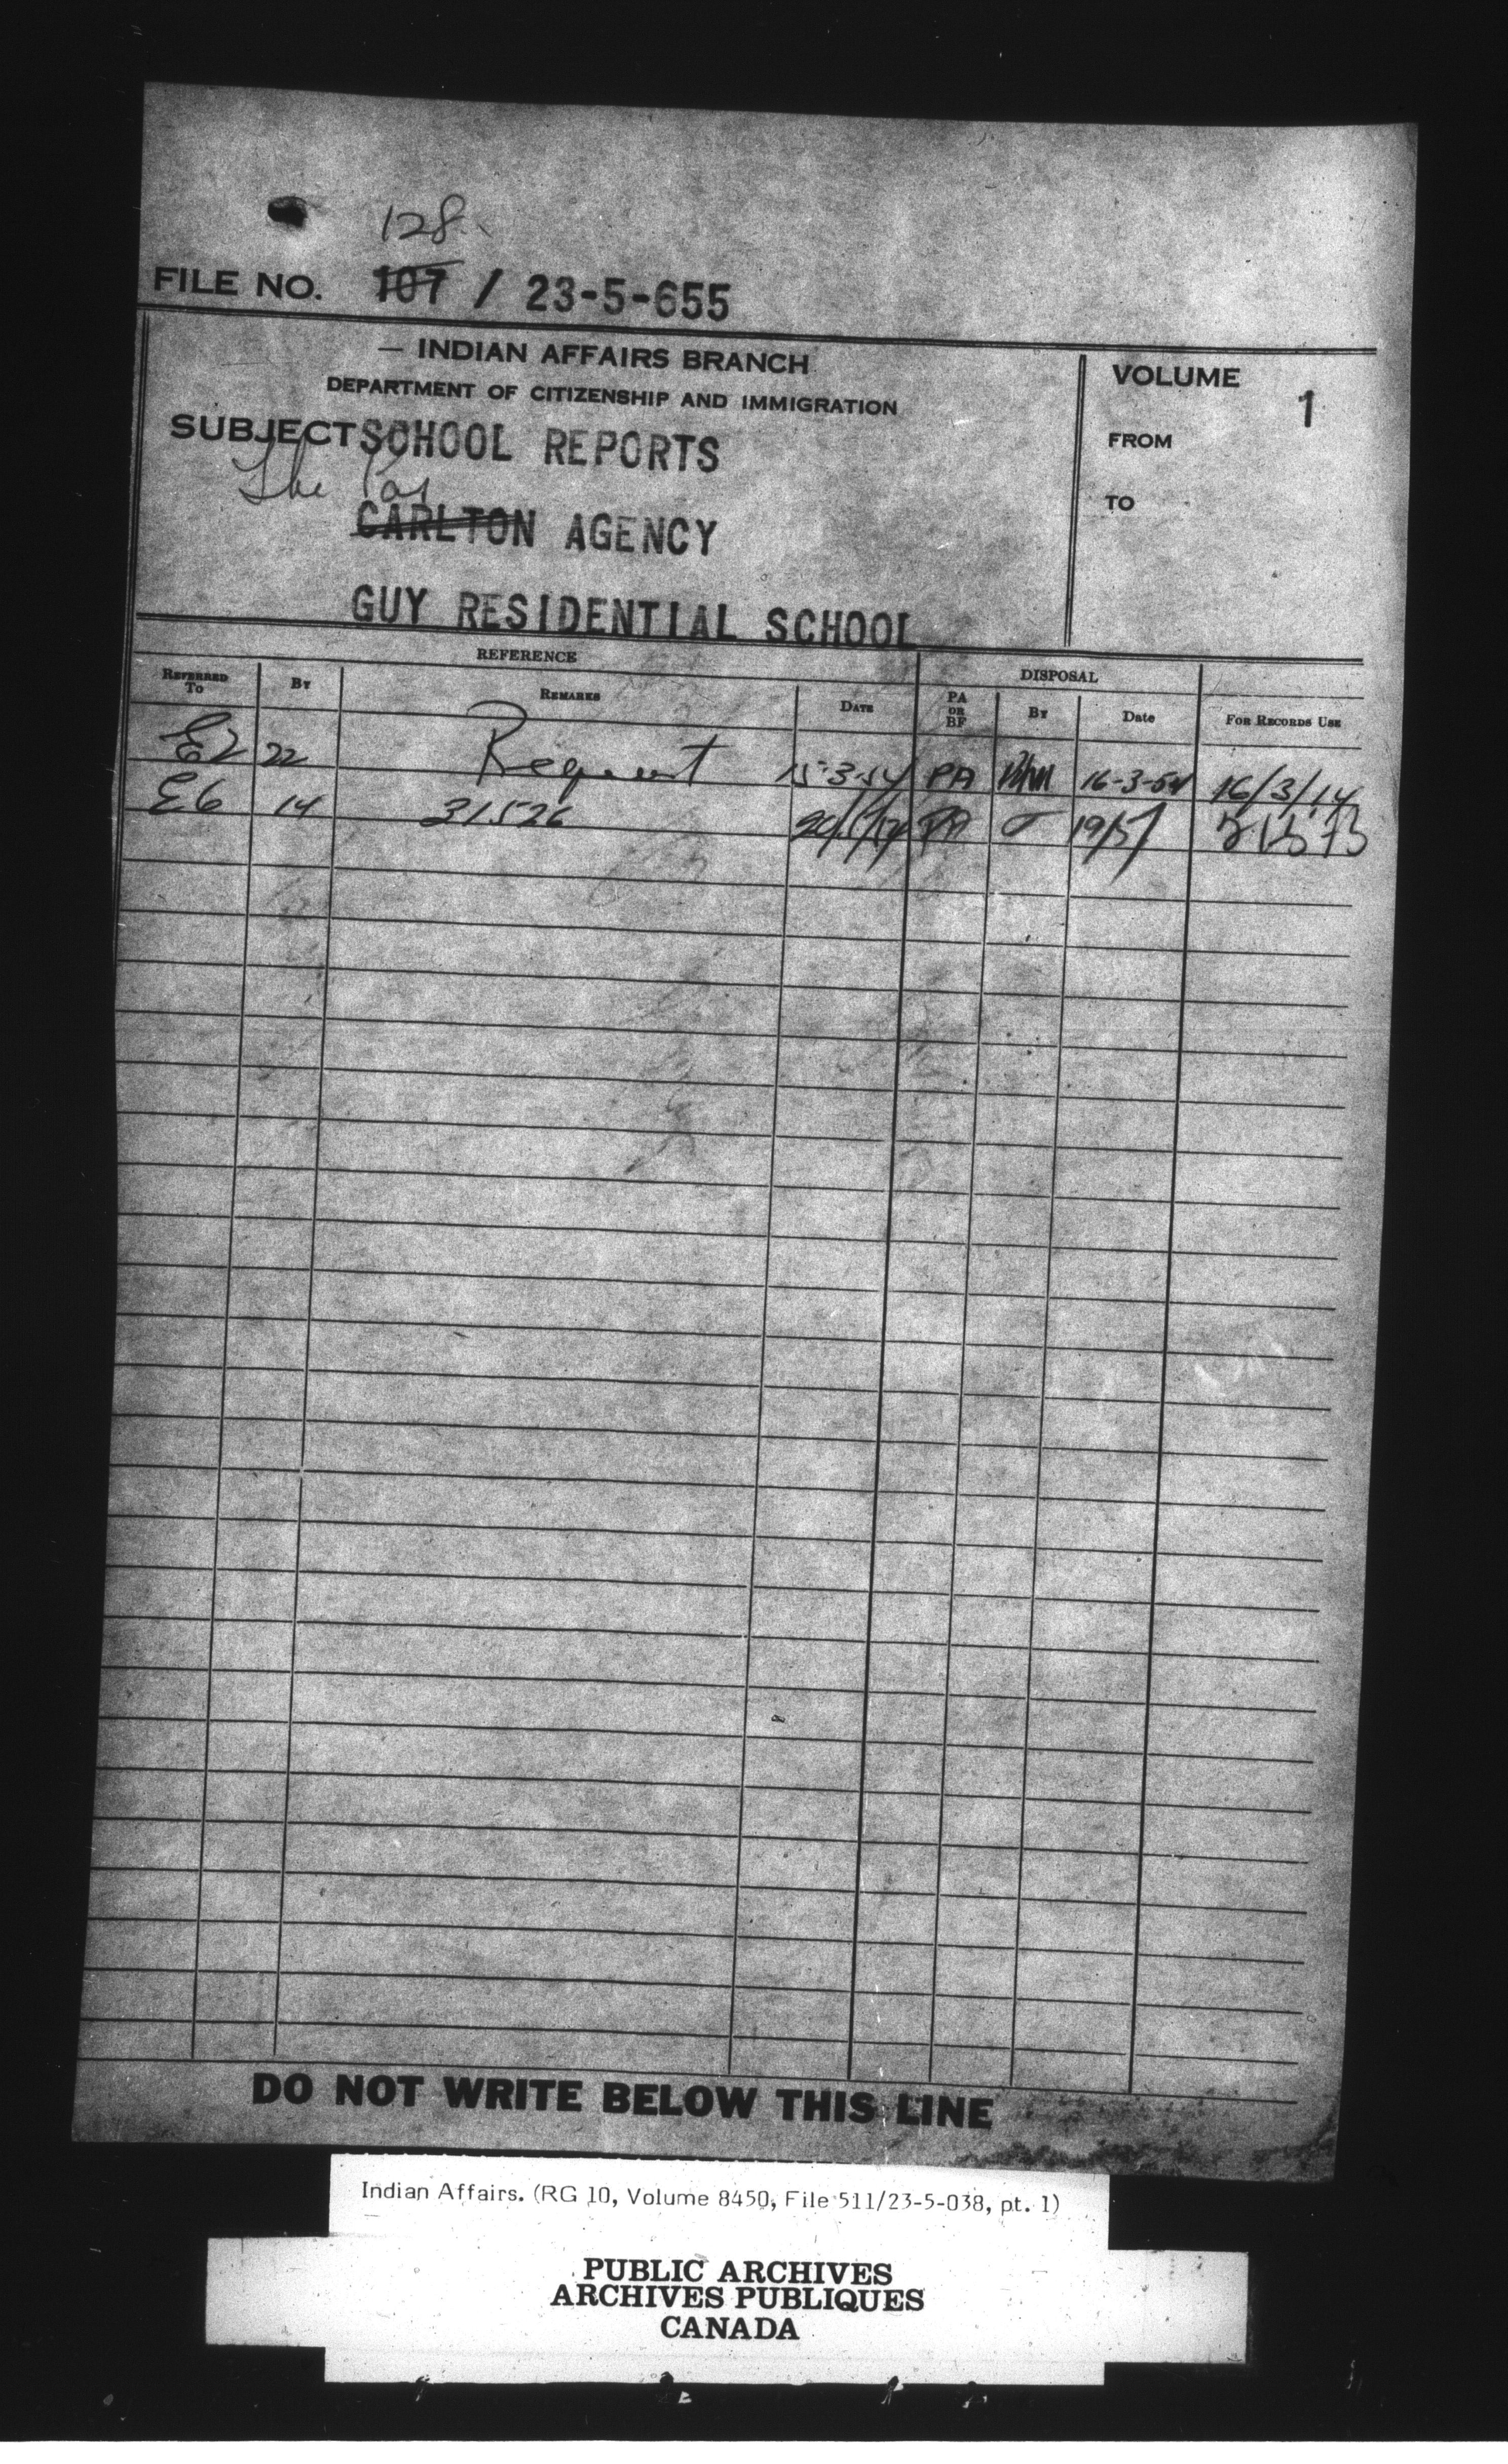 128
FILE NO. 107 / 23-5-655
— INDIAN AFFAIRS BRANCH
DEPARTMENT OF CITIZENSHIP AND IMMIGRATION
VOLUME 1
SUBJECT SCHOOL REPORTS
FROM
The Pas
TO
CARLTON AGENCY
GUY RESIDENTIAL SCHOOL
REFERENCE DISPOSAL
REFERRED TO BY REMARKS DATE PA OR BF BY Date FOR RECORDS USE
E2 22 Request 15-3-54 PA 16-3-54 16/3/14
E6 14 31526 PA 19/57
DO NOT WRITE BELOW THIS LINE
Indian Affairs. (RG 10, Volume 8450, File 511/23-5-038, pt. 1)
PUBLIC ARCHIVES
ARCHIVES PUBLIQUES
CANADA